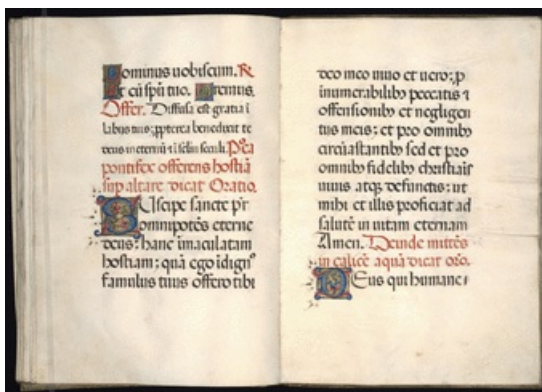 Dominus uobiscum. R
Et cū spū tuo. Oremus.
Offer. Diffusa est gratia ī
labiis tuis; ppterea benedixit te
deus ineternū ⁊ ī sclm seculi. Postea
pontifex offerens hostiā
sup altare dicat Oratio.
Suscipe sancte pr
omnipotēs eterne
deus: hanc īmaculatam
hostiam: quā ego īdignꝰ
famulus tuus offero tibi
deo meo uiuo et uero; p
inumerabilibꝫ peccatis ⁊
offensionibꝫ et negligen
tiis meis; et pro omnibꝫ
circūastantibꝫ sed et pro
omnibꝫ fidelibꝫ christiais
uiuis atqꝫ defunctis: ut
mihi et illis proficiat ad
salutē in uitam eternam
Amen. Deinde mittēs
in calicē aquā dicat oro.
Deus qui humane